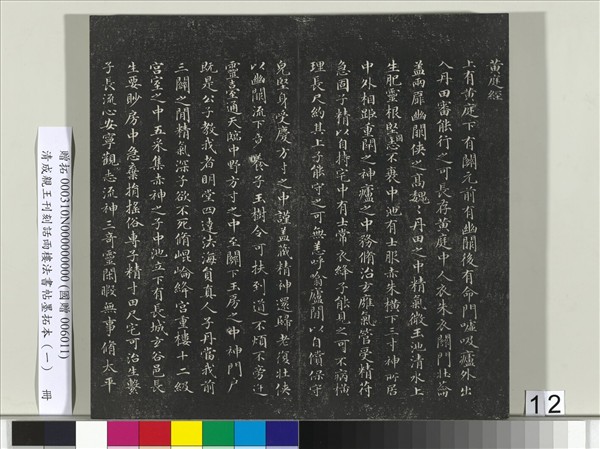 黃庭經
上有黃庭下有關元前有幽關後有命門噓吸廬外出
入丹田審能行之可長存黃庭中人衣朱衣關門壯籥
蓋兩扉幽關俠之高巍丹田之中精氣微玉池清水上
生肥靈根堅志不衰中池有士服赤朱橫下三寸神所居
中外相距重閉之神廬之中務脩治玄廱氣管受精符
急固子精以自持宅中有士常衣絳子能見之可不病橫
理長尺約其上子能守之可無恙呼翕廬間以自償保守
完堅身受慶方寸之中謹蓋藏精神還歸老復壯俠
以幽闕流下竟養子玉樹令可扶至道不煩不旁迕
靈臺通天臨中野方寸之中至關下玉房之中神門戶
既是公子教我者明堂四達法海員真人子丹當我前
三關之間精氣深子欲不死脩崐崘絳宮重樓十二級
宮室之中五采集赤神之子中池立下有長城玄谷邑長
生要眇房中急棄捐搖俗專子精寸田尺宅可治生繫
子長流心安寧觀志流神三奇靈閑暇無事脩太平
贈拓000310N000000000(國贈006011)
清成親王刊刻詒晉樓法書帖墨拓本(一) 冊
12